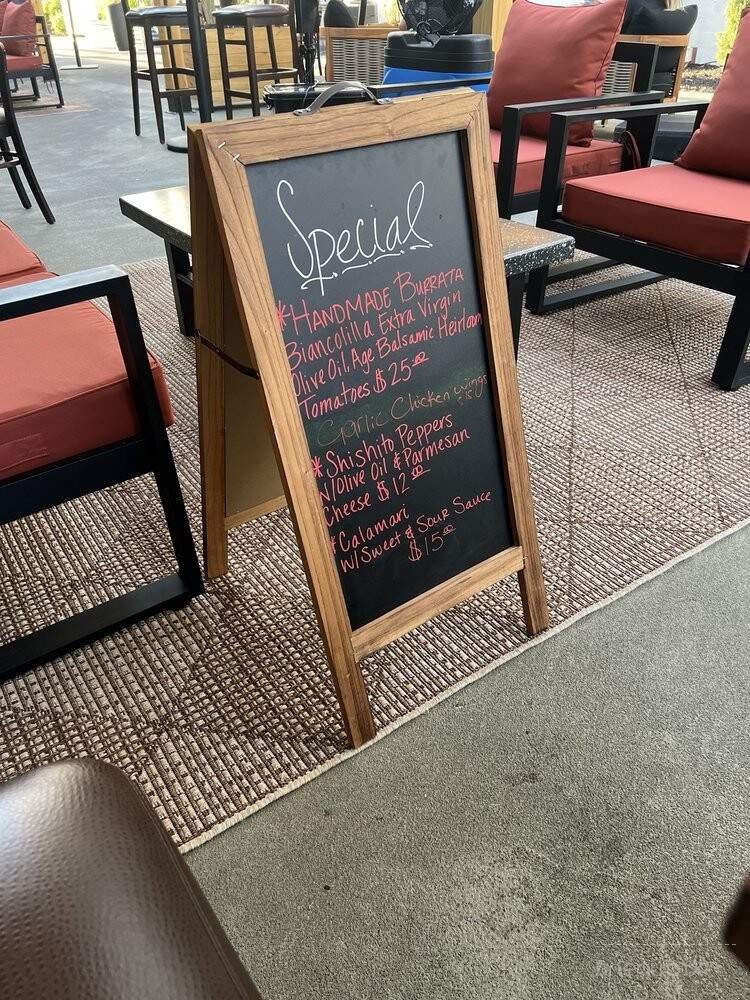 Special
*HANDMADE BURRATA
Biancolilla Extra Virgin
Olive Oil, Age Balsamic Heirloom
Tomatoes $25.00
Garlic Chicken Wings
*Shishito Peppers
W/Olive Oil & Parmesan
Cheese $12.00
*Calamari
W/Sweet & Sour Sauce
$15.00